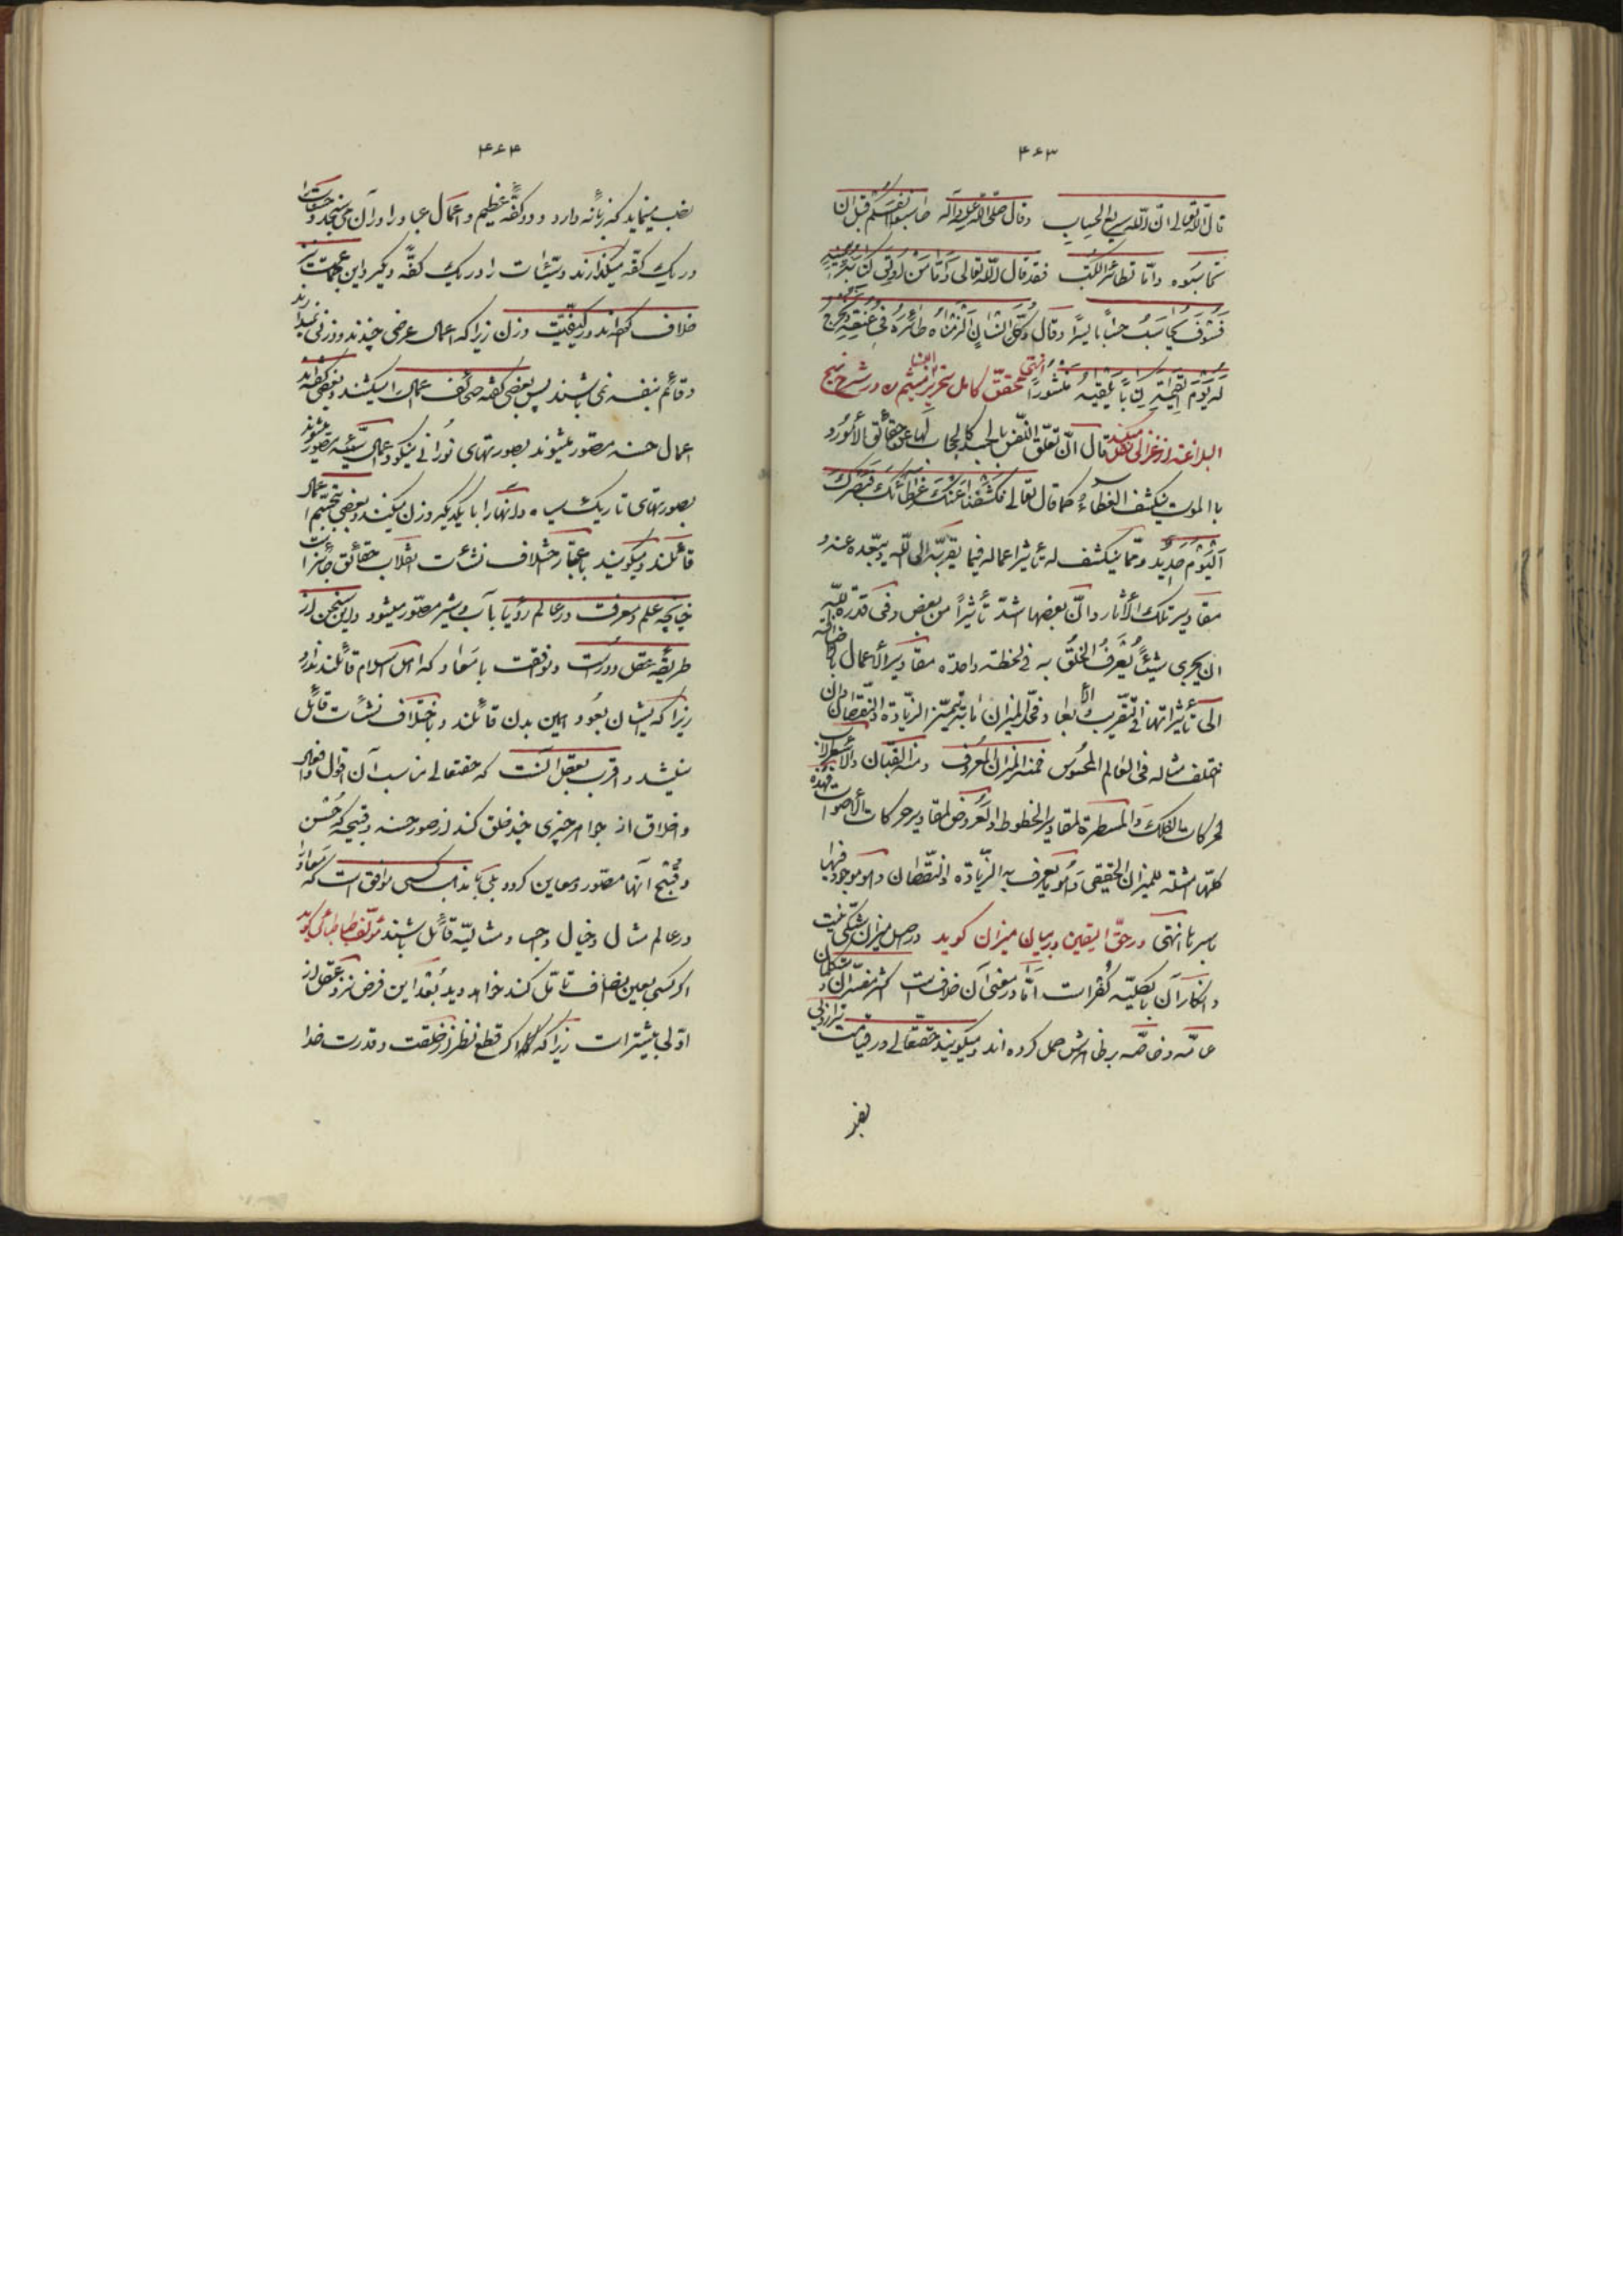 ۴۶۳
قال الله تعالی انّ الله سریع الحساب وقال صلّی الله علیه وآله حاسبوا انفسکم قبل ان
تحاسبوه وامّا تطائر الکتب فقد قال الله تعالی وَامّا مَنْ اُوتِیَ کِتابَهُ بِیَمینِهِ
فَسَوْفَ یُحاسَبُ حِسٰاباً یَسیراً وقال وَکُلَّ اِنْسٰانٍ اَلْزَمْنٰاهُ طٰائِرَهُ فی عُنُقِهِ وَنُخْرِجُ
لَهُ یَوْمَ الْقِیٰمَةِ کِتٰاباً یَلْقٰیهُ مَنْشُوراً انتهی محقّق کامل نحریر ابن میثم ره در شرح نهج
البلاغه از غزالی نقل میکند قال انّ تعلّق النّفس بالجسد کالحجاب لها عن حقائق الأمور و
بالموت ینکشف الغطاء کما قال تعالی فَکَشَفْنا عَنْکَ غِطٰائَکَ فَبَصَرُکَ
اَلْیَوْمَ حَدیدٌ وممّا ینکشف له تأثیر اعماله فیما یقرّبه الی الله ویبعّده عنه و
مقادیر تلک الأثار وانّ بعضها اشدّ تأثیراً من بعض وفی قدرة الله
ان یجری شیئاً یَعْرِفُ الخلقُ به فی لحظة واحدة مقادیر الأعمال بالاضافة
الی تأثیراتها فی التّقریب والأبعاد فحدّ المیزان ما به یتمیّز الزیادة والنّقصان وان
اختلف مثاله فی العالم المحسوس فمنه المیزان المعروف ومنه القبّان والأسطرلاب
لحرکات الفلک وَالمسطرة لمقادیر الخطوط والعَروض لمقادیر حرکات الأصوات فهذه
کلّها امثلة للمیزان الحقیقی وَهُو ما یعرف به الزّیادة والنّقصان وهو موجود فیها
باسرها انتهی در حقّ الیقین در بیان میزان کوید در اصل میزان شکّی نیست
و انکار آن بالکلیّه کُفر است امّا در معنی آن خلاف است اکثر مفسّران و متکلمان
عامّه و خاصّه بر ظاهرش حمل کرده اند و میکویند حقّتعالی در قیامت ترازوئی
نصب
۴۶۴
نصب مینماید که زبانه دارد و دو کفّه عظیم و اعمال عباد را در آن می سنجد و حسنات را
در یک کفّه میکذارند و سیّئات را در یک کفّه دیکر و این جماعت نیز
خلاف کرده اند در کیفیّت وزن زیرا که اعمال عرضی چندند و وزنی ندارند
و قائم بنفسه نمی باشند پس بعضی کفته صحائف اعمال را میکشند و بعضی کفته اند
اعمال حسنه مصوّر میشوند بصورتهای نُورانی نیکو و اعمال سیّئه مصوّر میشوند
بصورتهای تاریک سیاه و اینها را با یکدیکر وزن میکنند و بعضی بتجسّم اعمال
قائلند و میکویند باعتبار اختلاف نشأت انقلاب حقائق جائز است
چنانچه علم و معرفت در عالم رؤیا بآب و شیر مصوّر میشود و این سخن از
طریقه عقل دور است و موافقت با معاد که اهل اسلام قائلند ندارد
زیرا که ایشان بعَود همین بدن قائلند و باختلاف نشأت قائل
نیستند و اقرب بعقل آنست که حقتعالی مناسب آن اقوال و افعال
و اخلاق از جواهر چیزی چند خلق کند از صور حسنه و قبیحه که حُسْن
و قُبْح آنها مصوّر و معاین کردد بلی با مذهب کسی موافق است که معاد را
در عالم مثال و خیال و جسد مثالیّه قائل باشند مؤلف طباطبائی کوید
اکر کسی بعین انصاف تأمّل کند خواهد دید بُعْد این فرض نزد عقل از
اوّلی بیشتر است زیرا که اکر قطع نظر از خلقت و قدرت خدا